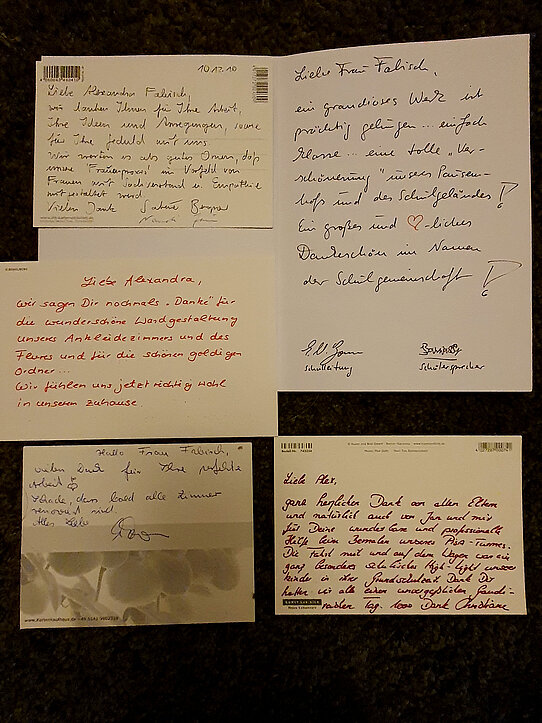 10.12.10
Liebe Alexandra Fabisch,
wir danken Ihnen für Ihre Arbeit,
Ihre Ideen und Anregungen, sowie
für Ihre Geduld mit uns
Wir werten es als gutes Omen, daß
unsere "Frauenpraxis" im Vorfeld von
Frauen mit Sachverstand u. Empathie
mitgestaltet wird
Vielen Dank Sabine
Liebe Frau Fabisch,
ein grandioses Werk ist
prächtig gelungen... einfach
klasse... eine tolle "Ver-
schönerung" unseres Pausen-
hofs und des Schulgeländes!
Ein großes und ♡-liches
Dankeschön im Namen
der Schulgemeinschaft!
Schulleitung Schülersprecher
Liebe Alexandra,
wir sagen Dir nochmals "Danke" für
die wunderschöne Wandgestaltung
unseres Ankleidezimmers und des
Flures und für die schönen goldigen
Ordner...
Wir fühlen uns jetzt richtig wohl
in unserem Zuhause.
Hallo Frau Fabisch,
vielen Dank für Ihre perfekte
Arbeit
Schade, dass bald alle Zimmer
renoviert sind.
Alles Liebe
Liebe Alex,
ganz herzlichen Dank von allen Eltern
und natürlich auch von Jan und mir
für Deine wunderbare und professionelle
Hilfe beim Bemalen unseres
Die Fahrt mit und auf dem Wagen war ein
ganz besonderes High-light unserer
Kinder in ihrer Grundschulzeit. Dank Dir
hatten wir alle einen unvergeßlichen Gaudi-
Tag. 1000 Dank Christiane